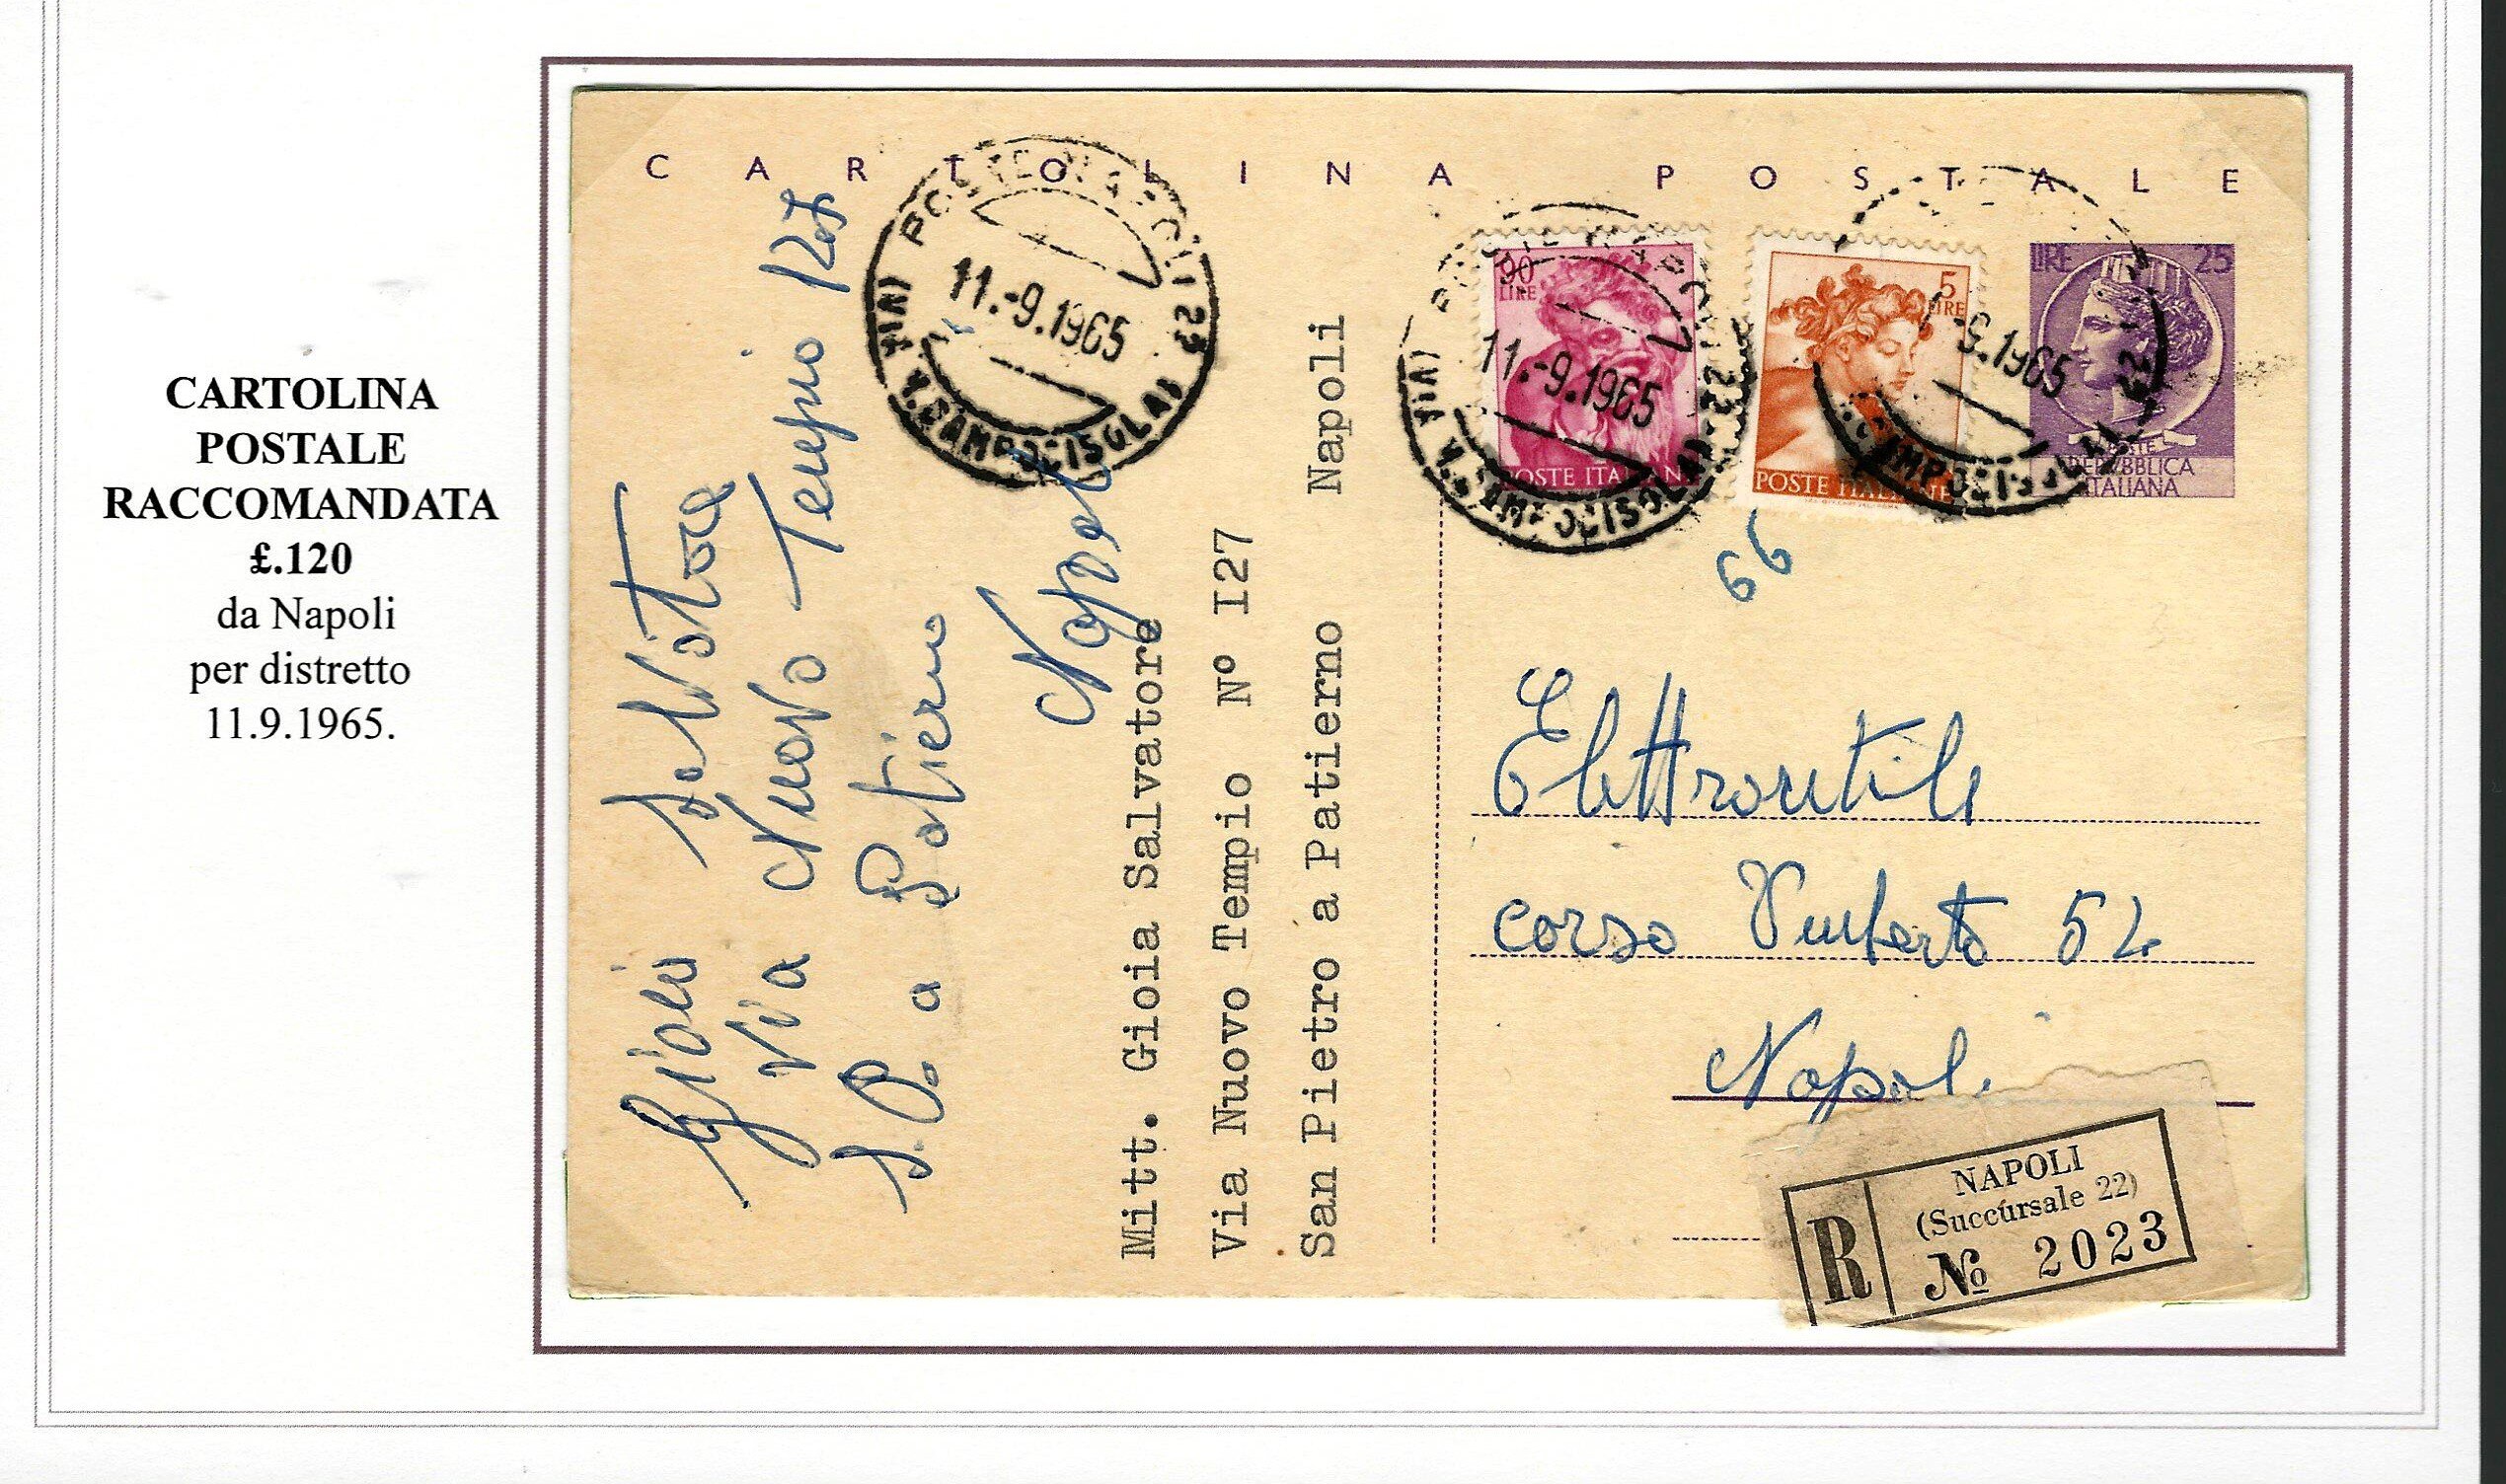 CARTOLINA
POSTALE
RACCOMANDATA
£.120
da Napoli
per distretto
11.9.1965.
CARTOLINA POSTALE
POSTE NAPOLI 22
11.-9.1965
(VIA N. CAMPODISOLA)
90
LIRE
POSTE ITALIANE
11.-9.1965
5
LIRE
POSTE ITALIANE
-9.1965
LIRE 25
POSTE
REPVBBLICA
ITALIANA
66
Gioia Salvatore
Via Nuovo Tempio 127
S. P. a Patierno
Napoli
Mitt. Gioia Salvatore
Via Nuovo Tempio Nº I27
San Pietro a Patierno Napoli
Elettroutile
corso Umberto 52
Napoli
R
NAPOLI
(Succursale 22)
Nº 2023